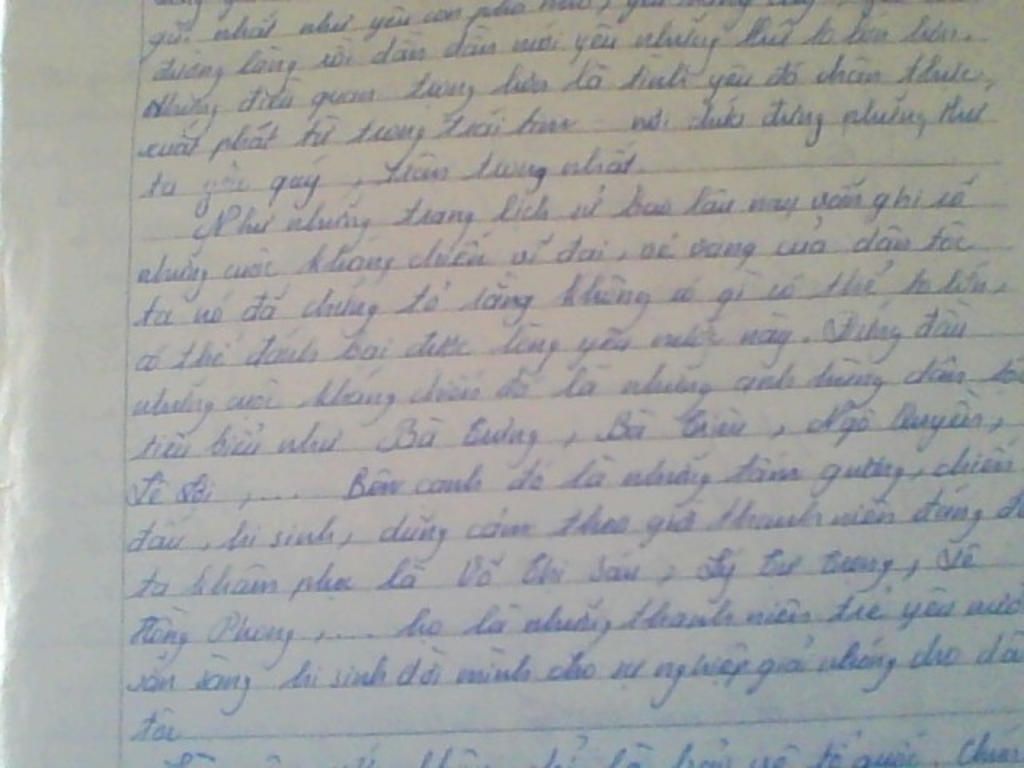 gũi nhất như yêu con phố nhỏ, yêu
đường làng rồi dần dần mới yêu những thứ to lớn hơn.
Nhưng điều quan trọng hơn là tình yêu đó chân thực,
xuất phát từ trong trái tim - nơi chứa đựng những thứ
ta yêu quý, trân trọng nhất.
Như những trang lịch sử bao lâu nay vẫn ghi rõ
những cuộc kháng chiến vĩ đại, vẻ vang của dân tộc
ta nó đã chứng tỏ rằng không có gì có thể to lớn,
có thể đánh bại được lòng yêu nước này. Đứng đầu
những cuộc kháng chiến đó là những anh hùng dân tộc
tiêu biểu như Bà Trưng, Bà Triệu, Ngô Quyền,
Lê Lợi, .... Bên cạnh đó là những tấm gương, chiến
đấu, hi sinh, dũng cảm theo giới thanh niên đáng để
ta khâm phục là Võ Thị Sáu, Lý Tự Trọng, Lê
Hồng Phong, .... họ là những thanh niên trẻ yêu nước
sẵn sàng hi sinh đời mình cho sự nghiệp giải phóng cho dân
tộc
không chỉ là bảo vệ tổ quốc.